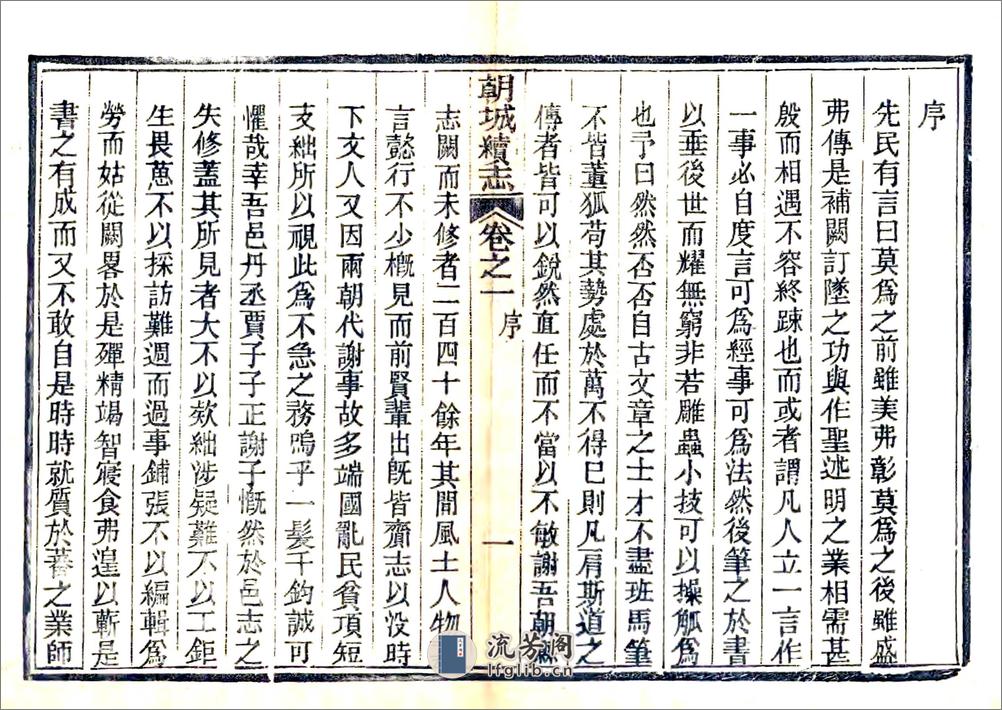 序
先民有言曰莫爲之前雖美弗彰莫爲之後雖盛
弗傳是補闕訂墜之功與作聖述明之業相需甚
殷而相遇不容終踈也而或者謂凡人立一言作
一事必自度言可爲經事可爲法然後筆之於書
以垂後世而耀無窮非若雕蟲小技可以操觚爲
也予曰然然否否自古文章之士才不盡班馬筆
不皆董狐苟其勢處於萬不得巳則凡肩斯道之
傳者皆可以銳然直任而不當以不敏謝吾朝
朝城續志
卷之一
序
一
志闕而未修者二百四十餘年其間風土人物
言懿行不少槪見而前賢輩出旣皆齎志以沒時
下文人又因兩朝代謝事故多端國亂民貧項短
支絀所以視此爲不急之務嗚乎一髮千鈞誠可
懼哉幸吾邑丹丞賈子子正謝子慨然於邑志之
失修蓋其所見者大不以欬絀涉疑難不以工鉅
生畏葸不以採訪難週而過事鋪張不以編輯爲
勞而姑從闕畧於是殫精竭智寢食弗遑以蘄是
書之有成而又不敢自是時時就質於蓍之業師
流芳阁
lfglib.cn